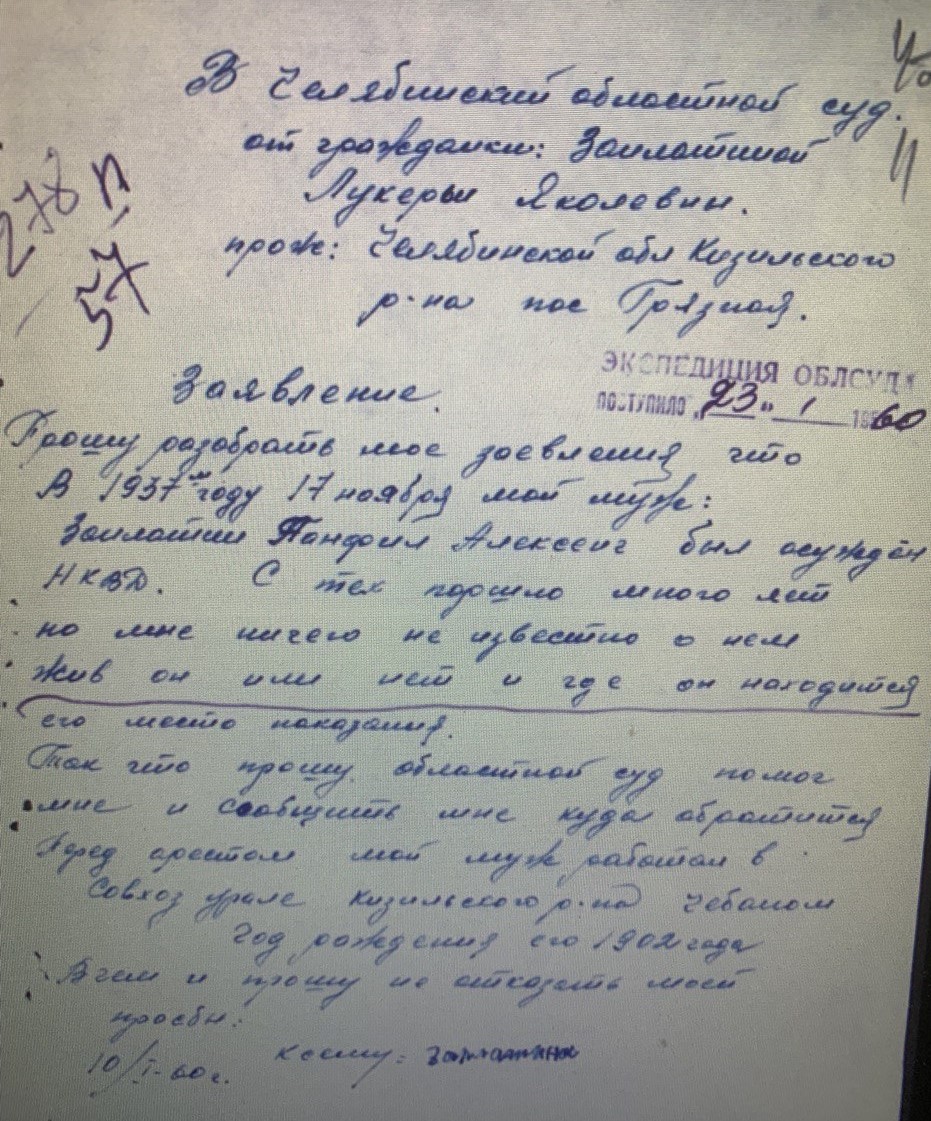 40
11
В Челябинский областной суд.
от гражданки: Заплатиной
Лукерьи Яколевны.
прож: Челябинской обл Кизильского
р-на пос Грязной.
278 п
57
ЭКСПЕДИЦИЯ ОБЛСУДА
ПОСТУПИЛО „23" 1 1960
Заявление.
Прошу разобрать мое заевления что
В 1937 м году 17 ноября мой муж:
Заплатин Панфил Алексеиг был осуждён
НКВД. С тех порошло много лет
но мне ничего не известно о нем
жив он или нет и где он находится
его место наказания.
Так что прошу областной суд помог
мне и сообщить мне куда обратится
Перед арестом мой муж работал в
Совхоз урале Кизильского р-на чебаном
Год рождения его 1902 года
В чем и прошу не отказать моей
просбы.
10/I-60 г. К сему: Заплатина